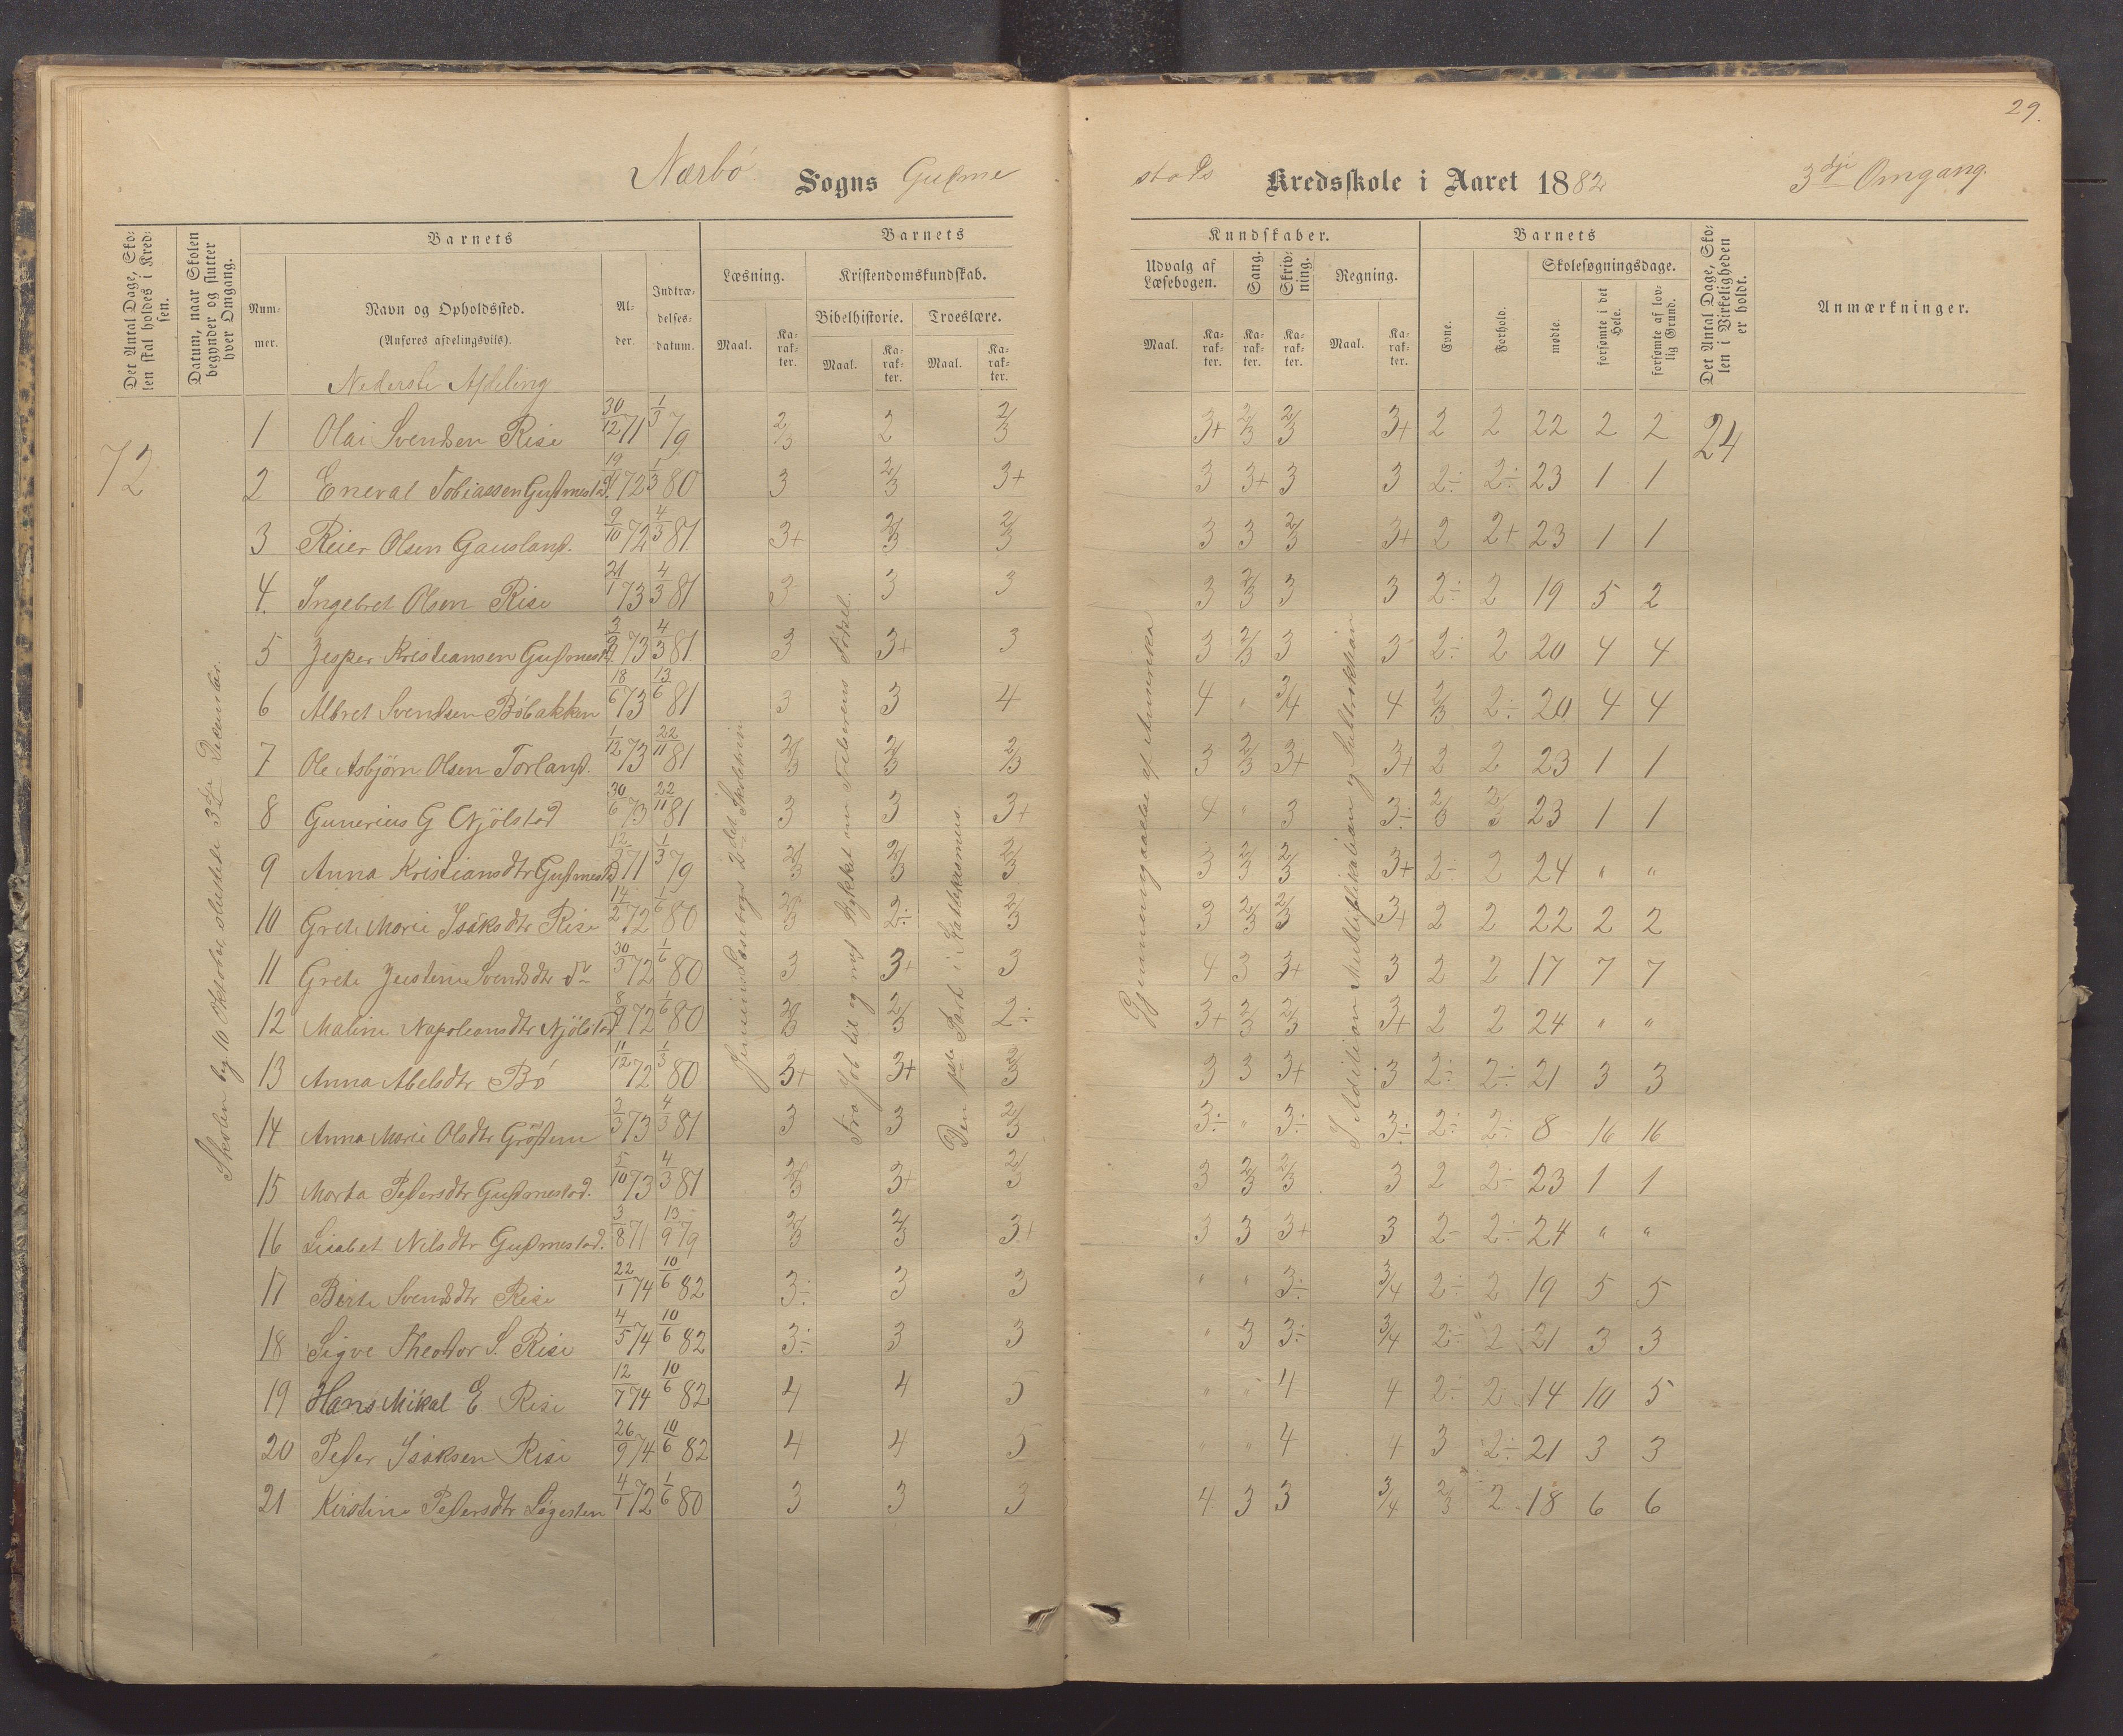 29.
Nærbö Sogns Gudme
stads Kredsskole i Aaret 1882 3dje Omgang.
Det Antal Dage, Skolen skal holdes i Kredsen.
Datum, naar Skolen begynder og slutter hver Omgang.
Barnets
Nummer.
Navn og Opholdssted.
(Anføres afdelingsvis).
Alder.
Indtrædelsesdatum.
Barnets Kundskaber.
Læsning. Kristendomskundskab. Udvalg af Læsebogen. Sang. Skrivning. Regning.
Bibelhistorie. Troeslære.
Maal. Karakter. Maal. Karakter. Maal. Karakter. Maal. Karakter. Karakter. Karakter. Maal. Karakter.
Barnets
Evne. Forhold.
Skolesøgningsdage.
mødte. forsømte i det Hele. forsømte af lovlig Grund.
Det Antal Dage, Skolen i Virkeligheden er holdt.
Anmærkninger.
Nederste Afdeling
72
Skolen beg. 10 Oktober, sluttede 3die December.
Jensens Læsebogs 2det Skoletrin
Fra Job til og med Stykket om Frelserens Fødsel.
Den 1ste Part i Katekismus.
Gjennemgaaelse af Amerika
I Addition Multiplikation og Subtraktion
1 Olai Svendsen Rise 30/12 71 1/3 79 2/3 2 2/3 3+ 2/3 2/3 3+ 2 2 22 2 2 24
2 Eneval Tobiassen Gudmestad 72 1/3 80 3 2/3 3+ 3 3+ 3 3 2÷ 2÷ 23 1 1
3 Reier Olsen Gausland. 9/10 72 4/3 81. 3+ 2/3 2/3 3 3 2/3 3+ 2 2+ 23 1 1
4. Ingebret Olsen Rise 21/1 73 4/3 81 3 3 3 3 2/3 3 3 2÷ 2 19 5 2
5 Jesper Kristiansen Gudmestd. 73 4/3 81. 3 3+ 3 3 2/3 3 3 2÷ 2 20 4 4
6 Albret Svendsen Böbakken 18/6 73 13/6 81 3 3 4 4 " 3/4 4 2/3 2÷ 20 4 4
7 Ole Asbjörn Olsen Torland. 1/12 73 22/11 81 2/3 2/3 2/3 3 2/3 3+ 3+ 2 2 23 1 1
8 Gunerius G Njölstad 30/6 73 22/11 81 3 3 3+ 4 " 3 3÷ 2/3 2/3 23 1 1
9 Anna Kristiansdtr Gudmestd 71 1/3 79 2/3 2/3 2/3 3 2/3 2/3 3+ 2÷ 2 24 " "
10 Grete Marie Isaksdtr Rise 14/2 72 1/6 80 2/3 2÷ 2/3 3 2/3 2/3 3+ 2 2 22 2 2
11 Grete Justine Svendsdtr do 30/5 72 1/6 80 3 3+ 3 4 3 3+ 3 2 2 17 7 7
12 Maline Napoleansdtr Njölstad 72 1/6 80 2/3 2/3 2÷ 3+ 2/3 2/3 3+ 2 2 24 " "
13 Anna Abelsdtr Bö 11/12 72 1/3 80 3+ 3+ 2/3 3 3 3+ 3 2÷ 2÷ 21 3 3
14 Anna Marie Olsdtr 3/3 73 4/3 81 3 3 2/3 3÷ " 3÷ 3÷ 2÷ 2÷ 8 16 16
15 Marta Pedersdtr Gudmestad. 5/10 73 4/3 81 2/3 3+ 2/3 3 2/3 2/3 3 2 2÷ 23 1 1
16 Lisabet Nilsdtr Gudmestad. 3/8 71 13/9 79 2/3 2/3 3+ 3 3 3+ 3 2÷ 2÷ 24 " "
17 Berte Svendsdtr Rise 22/1 74 10/6 82 3÷ 3 3 " " 3÷ 3/4 2÷ 2 19 5 5
18 Sigve Theodor S. Rise 4/5 74 10/6 82 3÷ 3 3 " 3 3÷ 3/4 2÷ 2 21 3 3
19 Hans Mikal E Rise 12/7 74 10/6 82 4 4 5 " " 4 4 2÷ 2 14 10 5
20 Peder Isaksen Rise 26/9 74 10/6 82 4 4 5 " " 4 4 3 2÷ 21 3 3
21 Kirstine Pedersdtr Ligesten 4/1 72 1/6 80 3 3 3 4 3 3 3/4 2/3 2 18 6 6